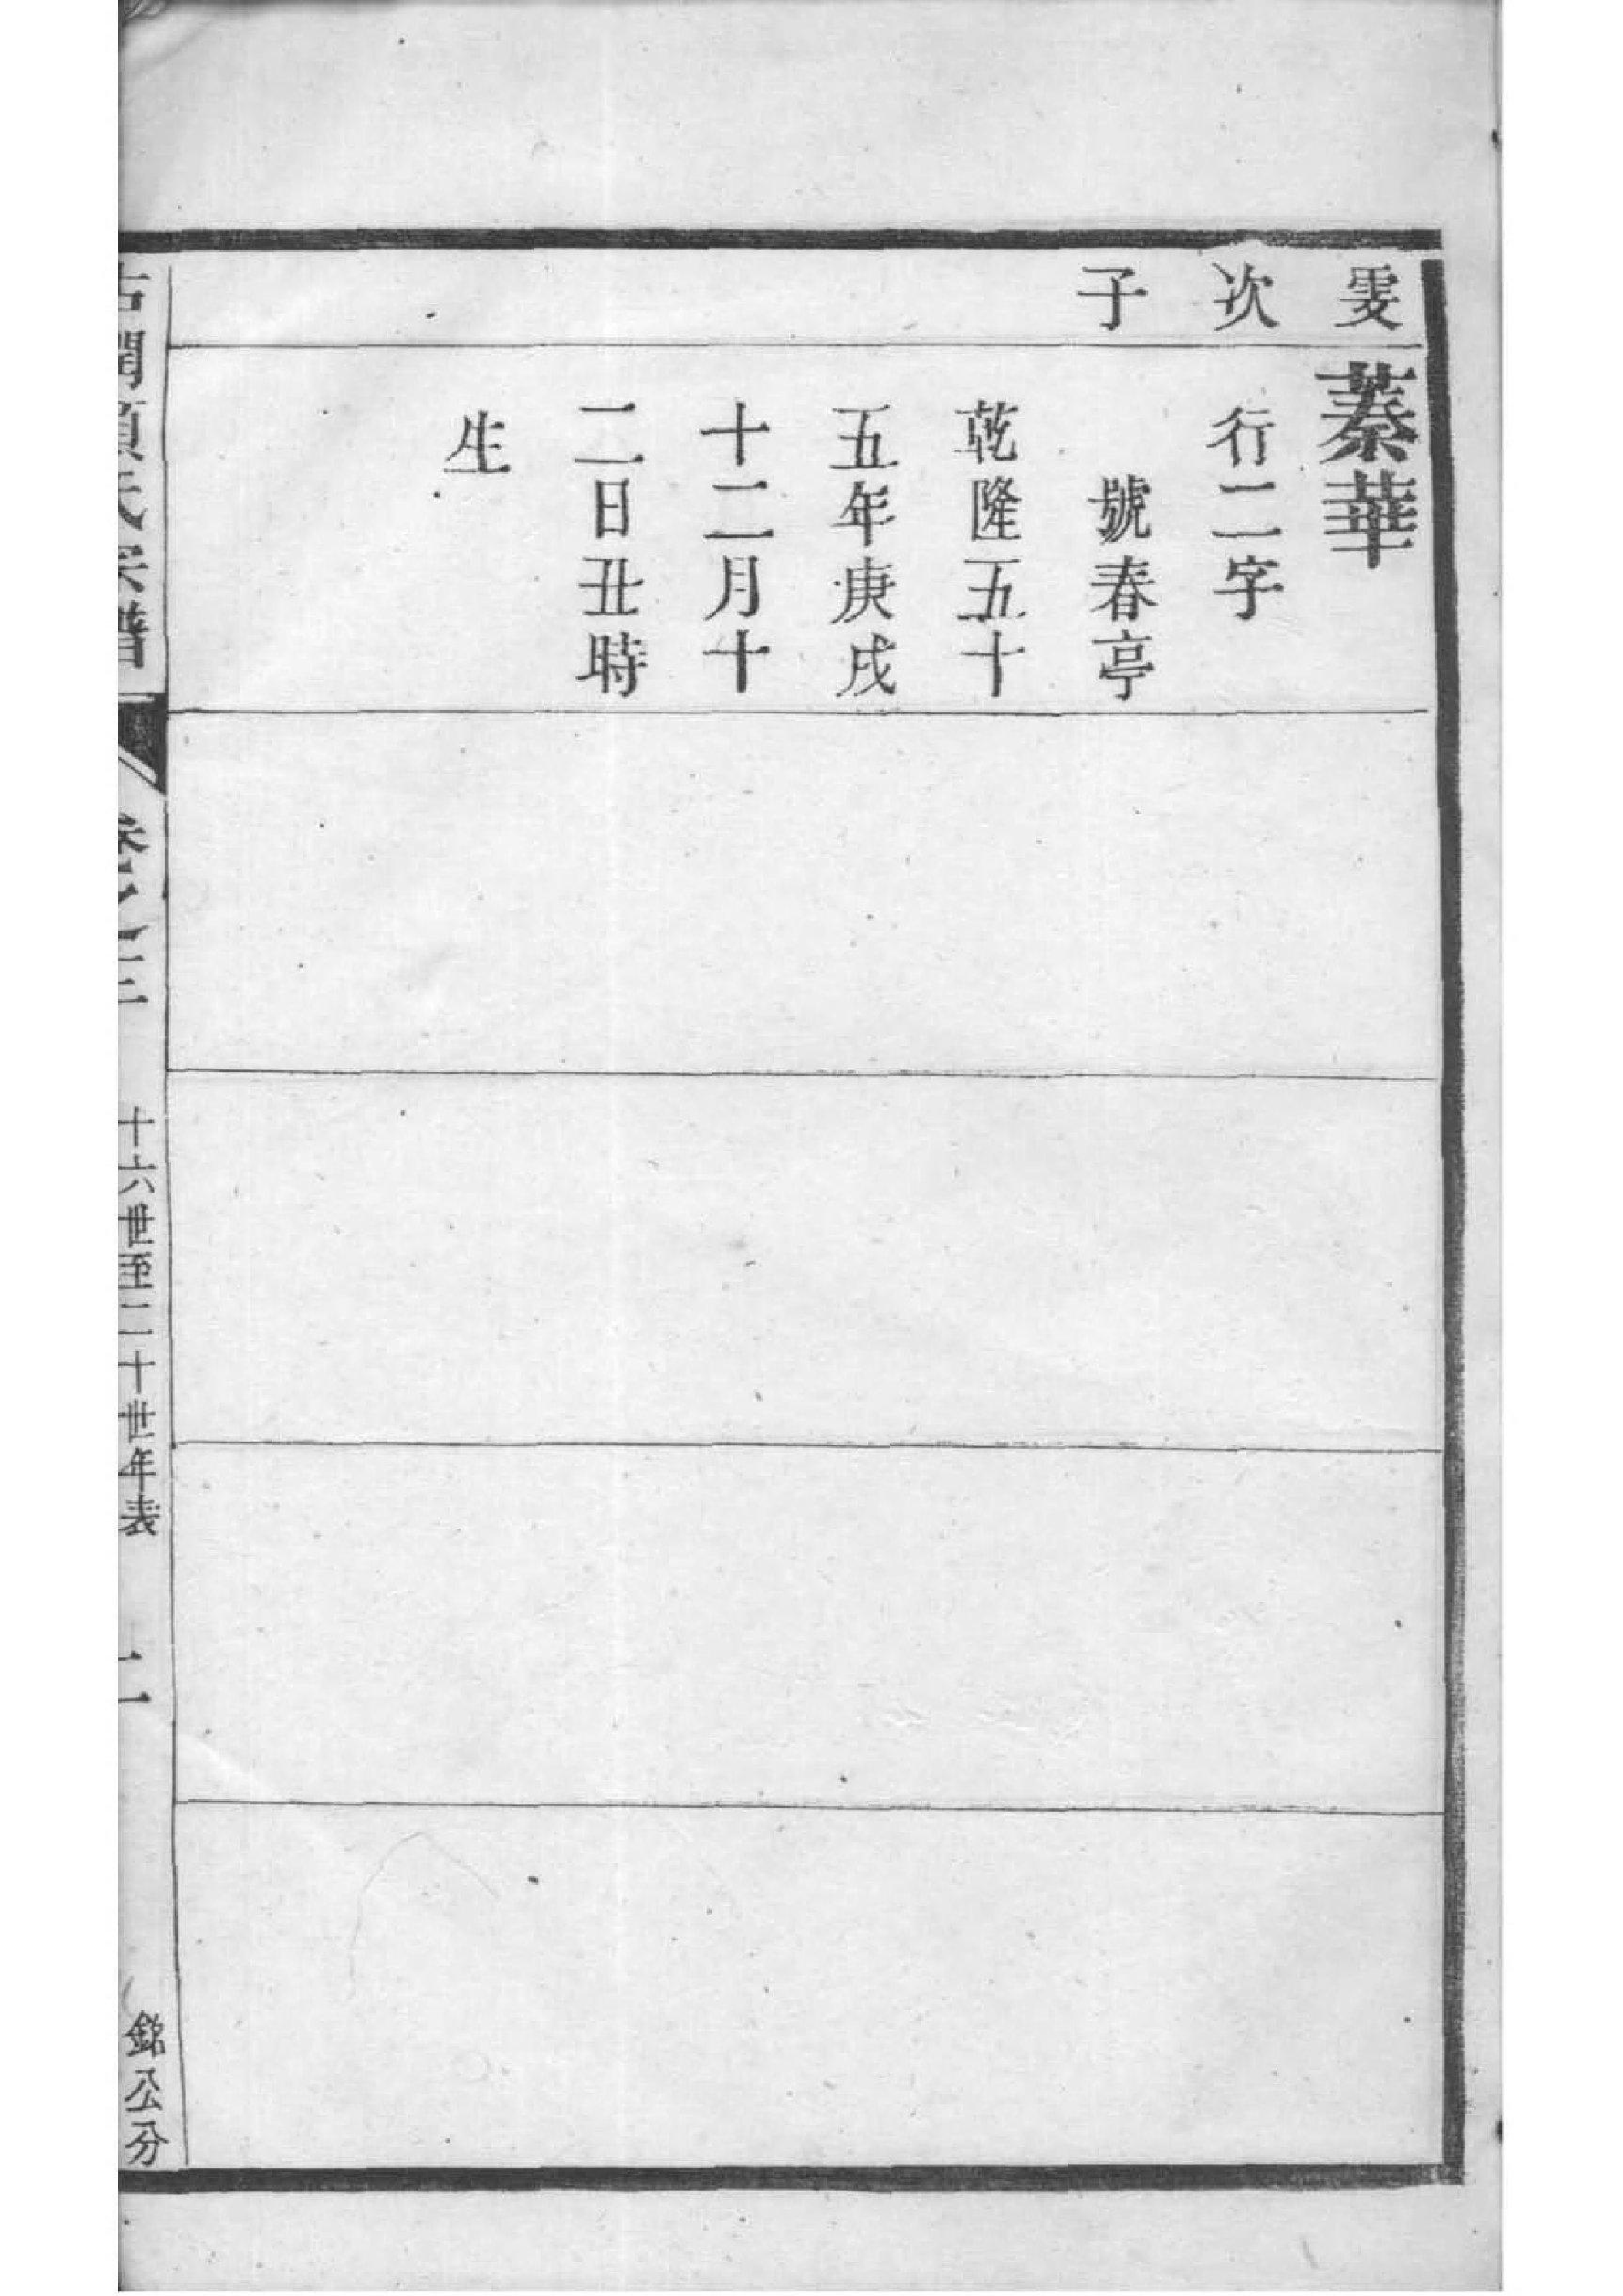 雯次子
蓁華
行二字
號春亭
乾隆五十
五年庚戌
十二月十
二日丑時
生
氏宗譜
卷之
十六世至二十世年表
銘公分